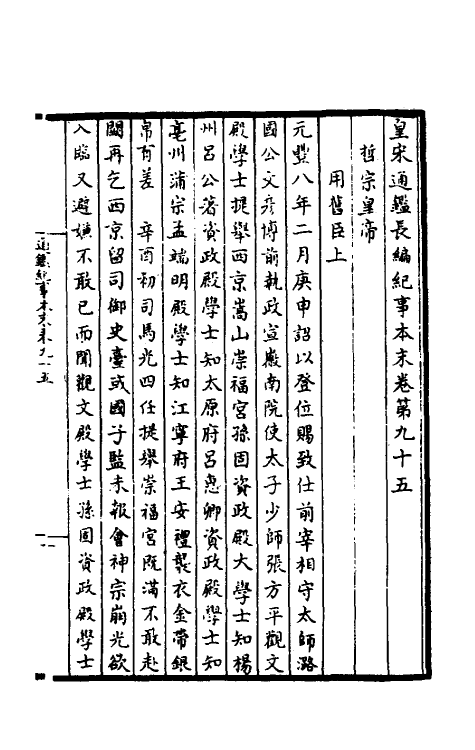 皇宋通鑑長編紀事本末卷第九十五
哲宗皇帝
用舊臣上
元豐八年二月庚申詔以登位賜致仕前宰相守太師潞
國公文彥博前執政宣徽南院使太子少師張方平觀文
殿學士提舉西京嵩山崇福宮孫固資政殿大學士知楊
州呂公著資政殿學士知太原府呂惠卿資政殿學士知
亳州蒲宗孟端明殿學士知江寧府王安禮襲衣金帶銀
帛有差　辛酉初司馬光四任提舉崇福宮既滿不敢赴
闕再乞西京留司御史臺或國子監未報會神宗崩光欲
入臨又避嫌不敢已而聞觀文殿學士孫固資政殿學士
通鑑紀事本末卷九十五
一